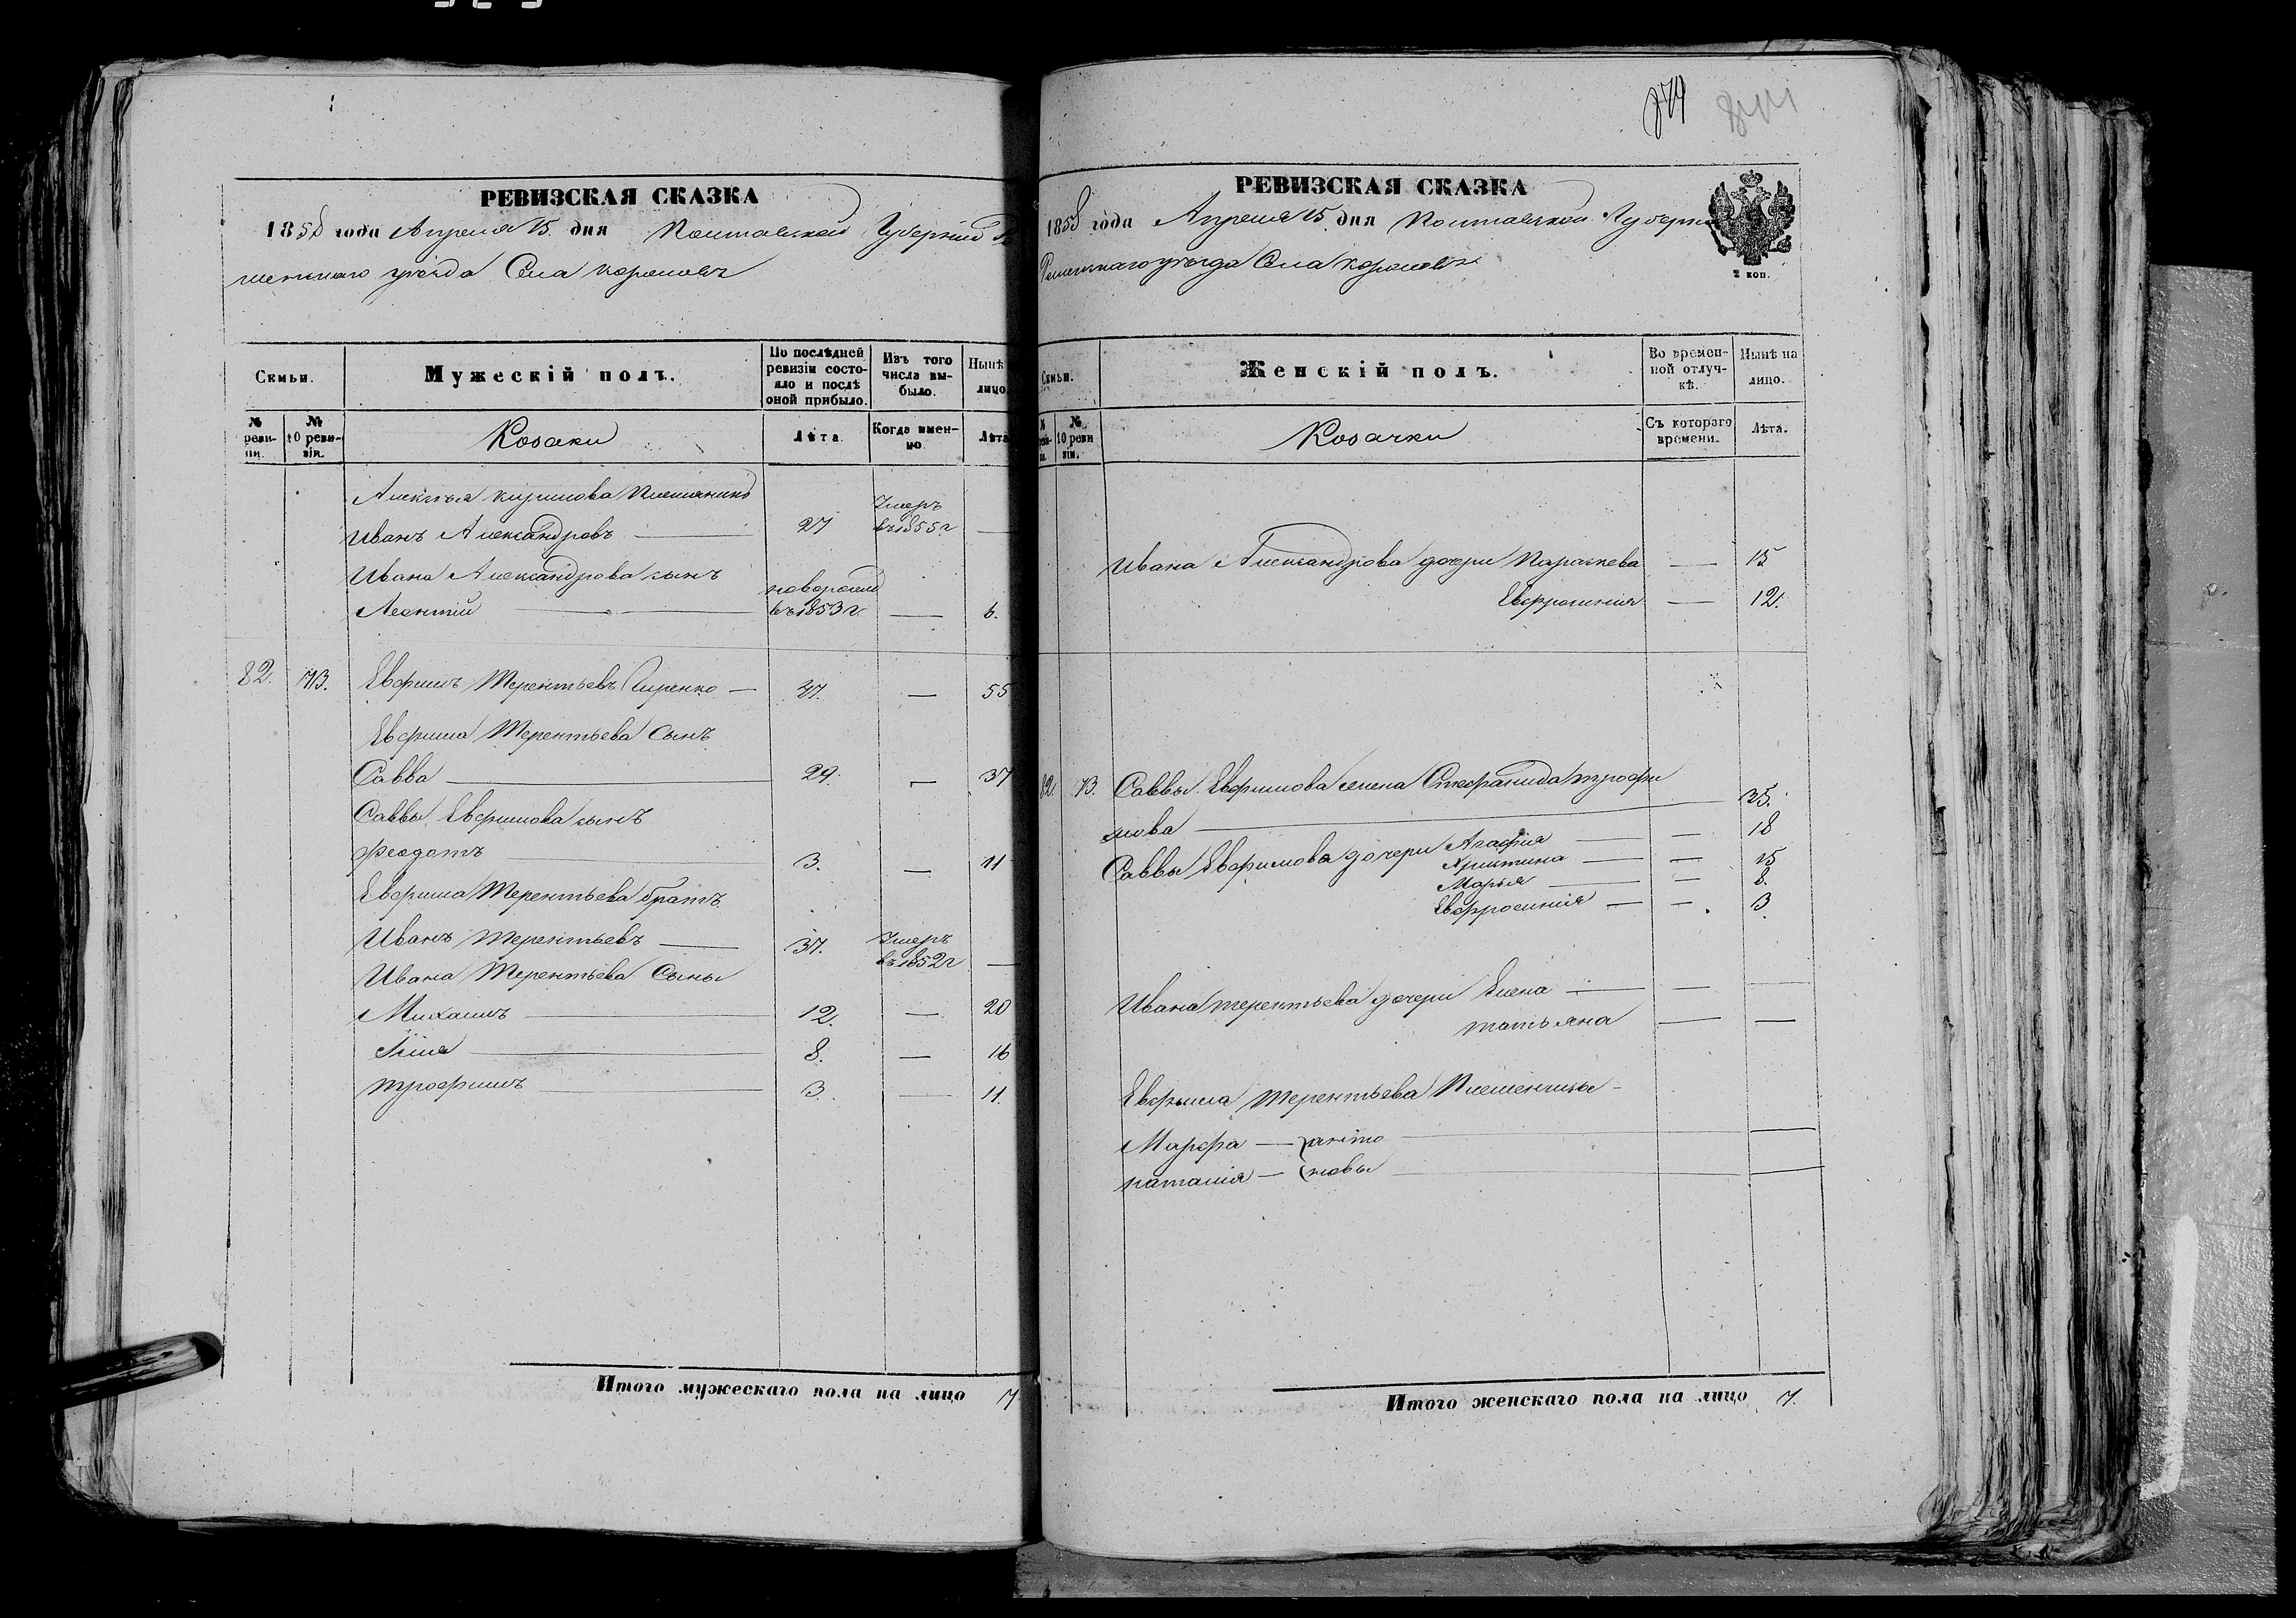 РЕВИЗСКАЯ СКАЗКА
1858 года Апреля 15 дня Полтавской Губерніи
менскаго уѣзда Села
Семьи.
Мужескій полъ.
По послѣдней ревизіи состояло и послѣ оной прибыло.
Изъ того числа выбыло.
Нынѣ лицо
№ реви-
№ 10 ревизіи.
Козаки
Лѣта
Когда именно.
Лѣта
Алексѣя Кирилова Племянникъ
Иванъ Александровъ — 27 Умеръ въ 1855 г —
Ивана Александрова сынъ
Леонтій — новорожд въ 1853 г — 6.
82. 73. Евфимъ Терентьевъ — 47. — 55
Евфима Терентьева Сынъ
Савва — 29. — 37
Саввы Евфимова сынъ
Феодотъ 3. — 11
Евфима Терентьева братъ
Иванъ Терентьевъ — 37. Умеръ въ 1852 г —
Ивана Терентьева Сыны
Михаилъ — 12. — 20
— 8. — 16
Трофимъ — 3. — 11.
Итого мужескаго пола на лицо 7
РЕВИЗСКАЯ СКАЗКА
1858 года Апреля 15 дня Полтавской Губерніи
Роменскаго уѣзда Села
2 коп.
Семьи.
Женскій полъ.
Во временной отлучкѣ.
Нынѣ на лицо.
№
№ 10 ревизіи.
Козачки
Съ котораго времени.
Лѣта.
Ивана Александрова дочери Параскева — 15
Евфросинія — 12.
82. 73. Саввы Евфимова жена Стефанида Трофи
мова — 35.
Саввы Евфимова дочери Агафія — — 18
Христина — — 15
Марья — — 8.
Евфросинія — — 3
Ивана Терентьева дочери Елена — — —
Татьяна — —
Евфима Терентьева Племенницы
Марфа — анто — —
Наталія — новы — —
Итого женскаго пола на лицо 7.